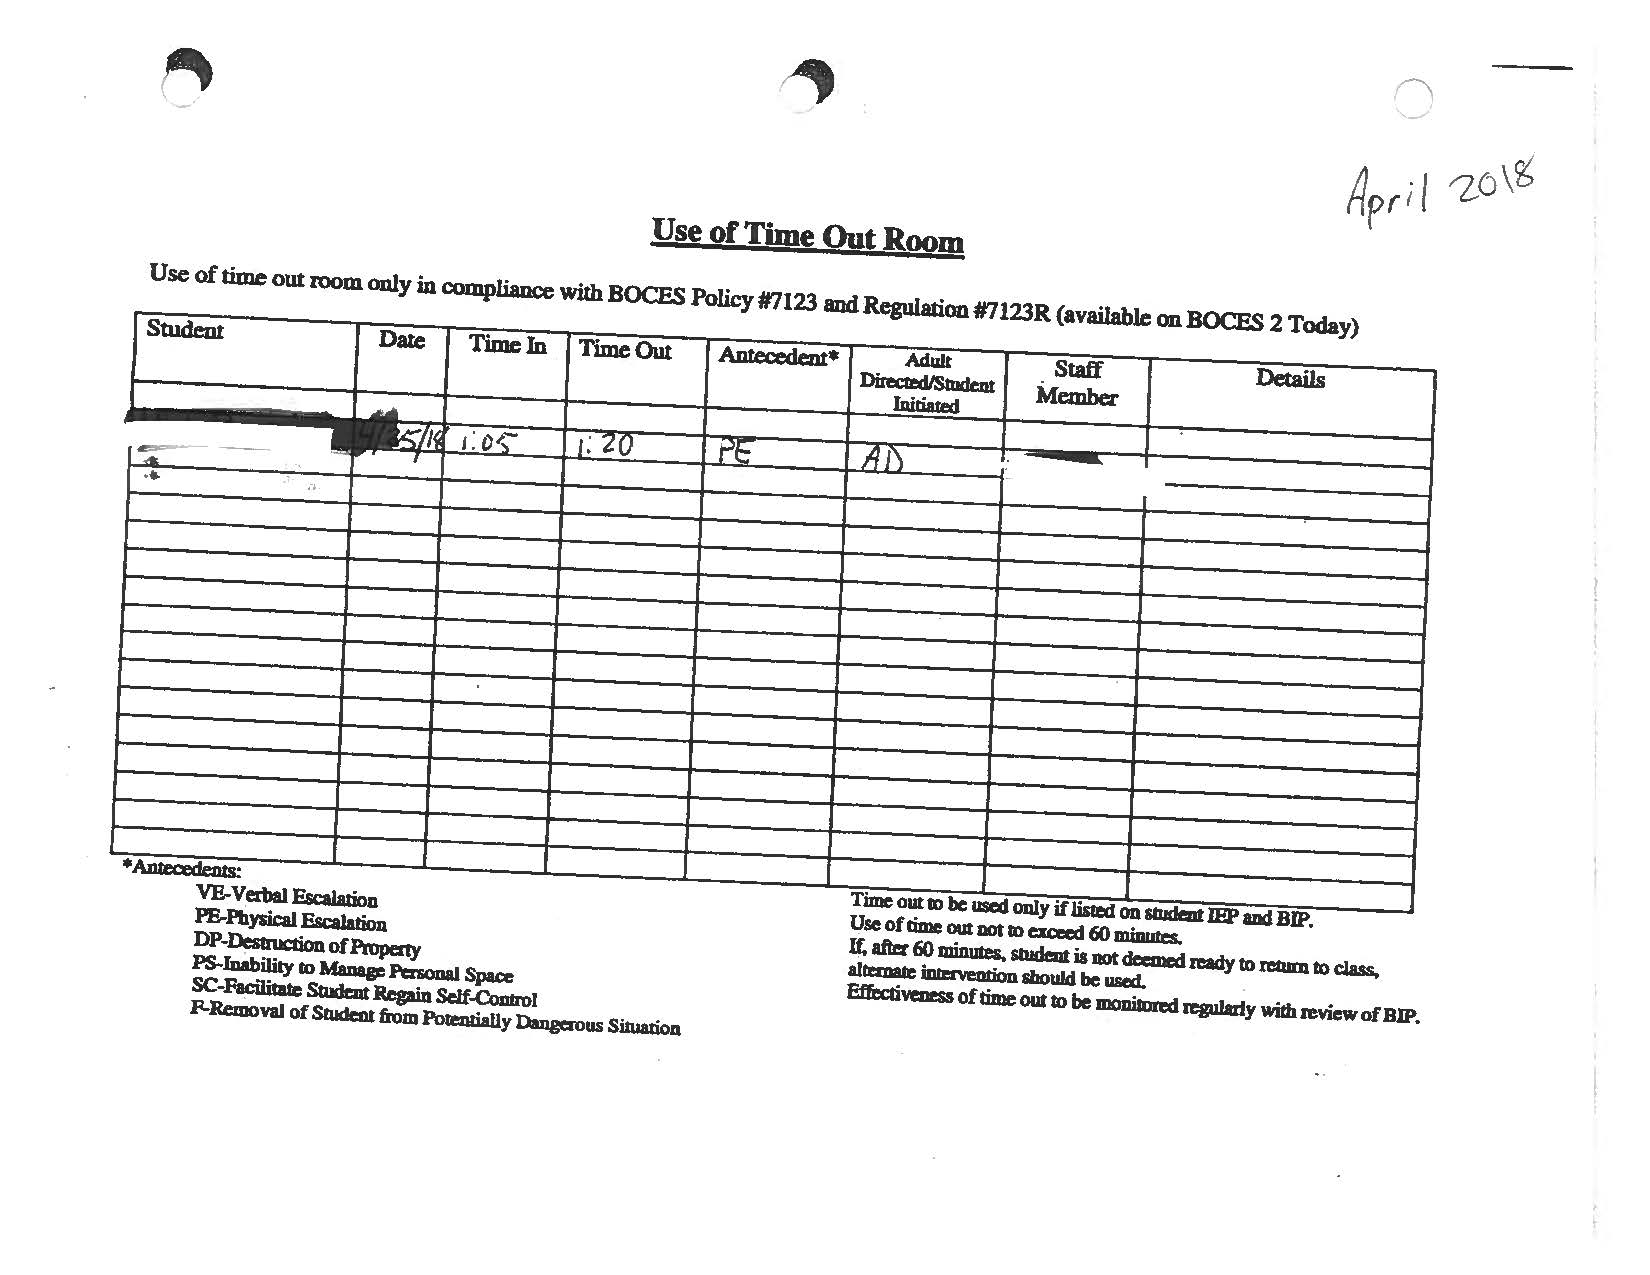 April 2018
Use of Time Out Room
Use of time out room only in compliance with BOCES Policy #7123 and Regulation #7123R (available on BOCES 2 Today)
Student Date Time In Time Out Antecedent* Adult Directed/Student Initiated Staff Member Details
4/25/18 1:05 1:20 PE AD
*Antecedents:
VE-Verbal Escalation
PE-Physical Escalation
DP-Destruction of Property
PS-Inability to Manage Personal Space
SC-Facilitate Student Regain Self-Control
F-Removal of Student from Potentially Dangerous Situation
Time out to be used only if listed on student IEP and BIP.
Use of time out not to exceed 60 minutes.
If, after 60 minutes, student is not deemed ready to return to class,
alternate intervention should be used.
Effectiveness of time out to be monitored regularly with review of BIP.